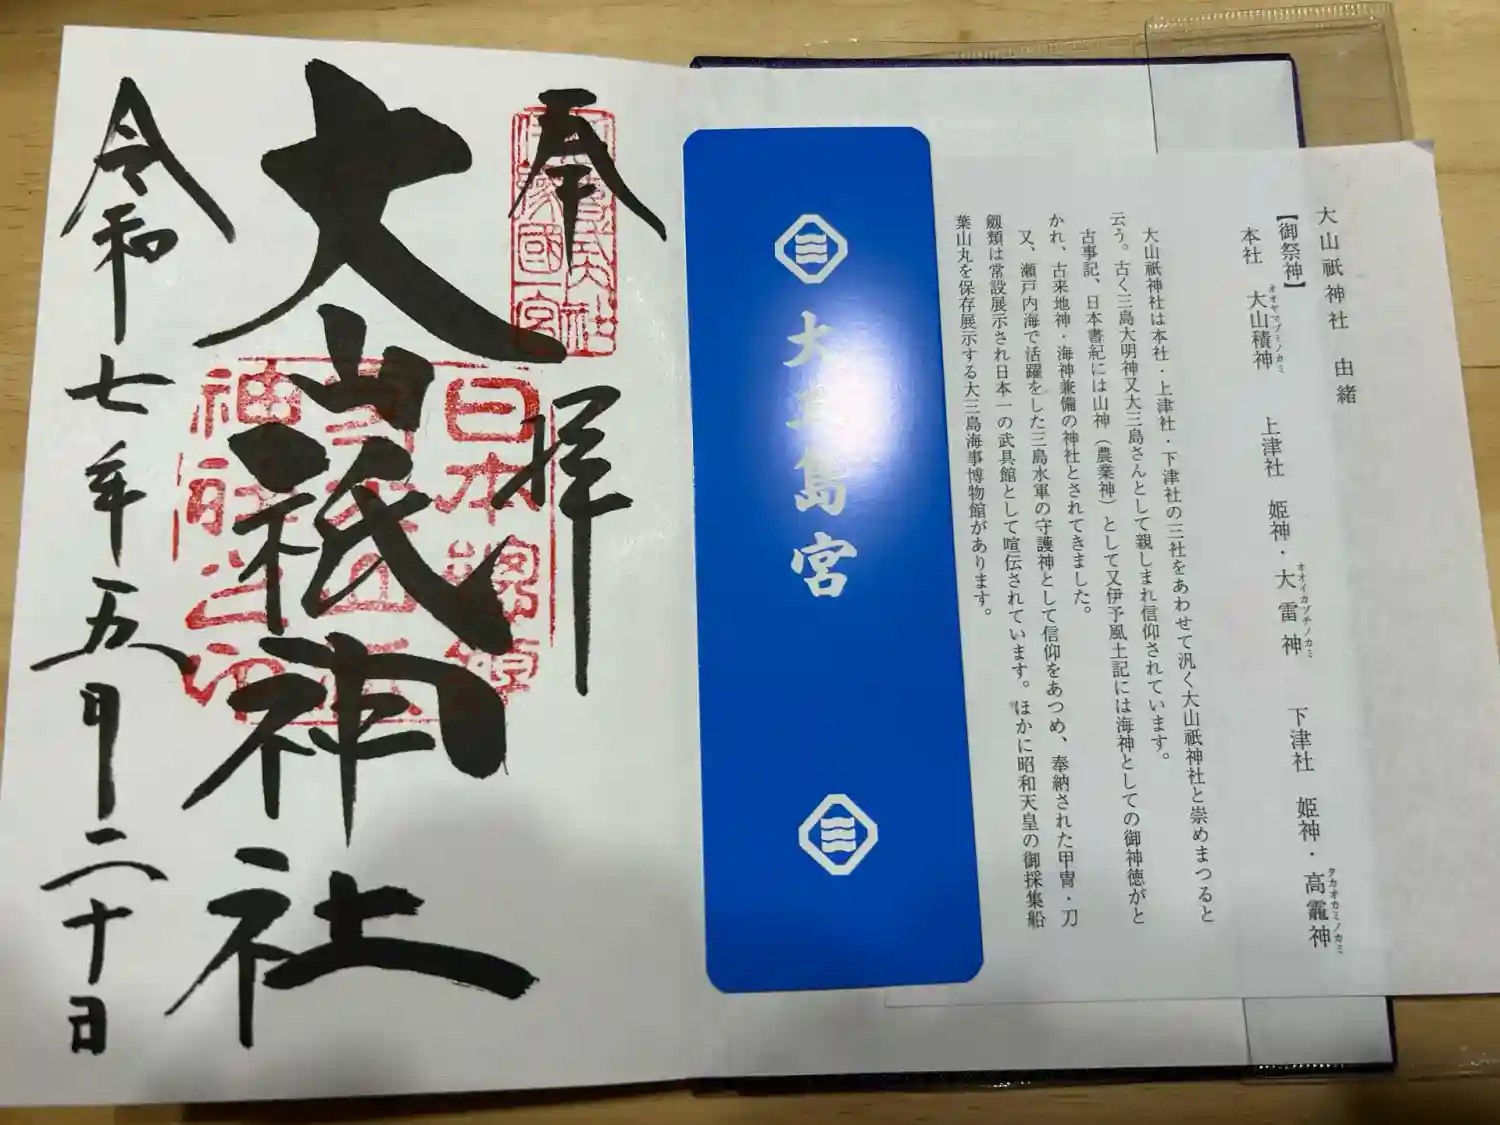 大山祇神社　由緒
【御祭神】
本社　大山積神　上津社　姫神・大雷神　下津社　姫神・高龗神
オオヤマヅミノカミ
オオイカヅチノカミ
タカオカミノカミ
大山祇神社は本社・上津社・下津社の三社をあわせて汎く大山祇神社と崇めまつると
云う。古く三島大明神又大三島さんとして親しまれ信仰されています。
古事記、日本書紀には山神（農業神）として又伊予風土記には海神としての御神徳がと
かれ、古来地神・海神兼備の神社とされてきました。
又、瀬戸内海で活躍をした三島水軍の守護神として信仰をあつめ、奉納された甲冑・刀
剱類は常設展示され日本一の武具館として喧伝されています。ほかに昭和天皇の御採集船
葉山丸を保存展示する大三島海事博物館があります。
大三島宮
奉拝
大山祇神社
令和七年五月二十日
伊豫國一宮
日本總鎮守